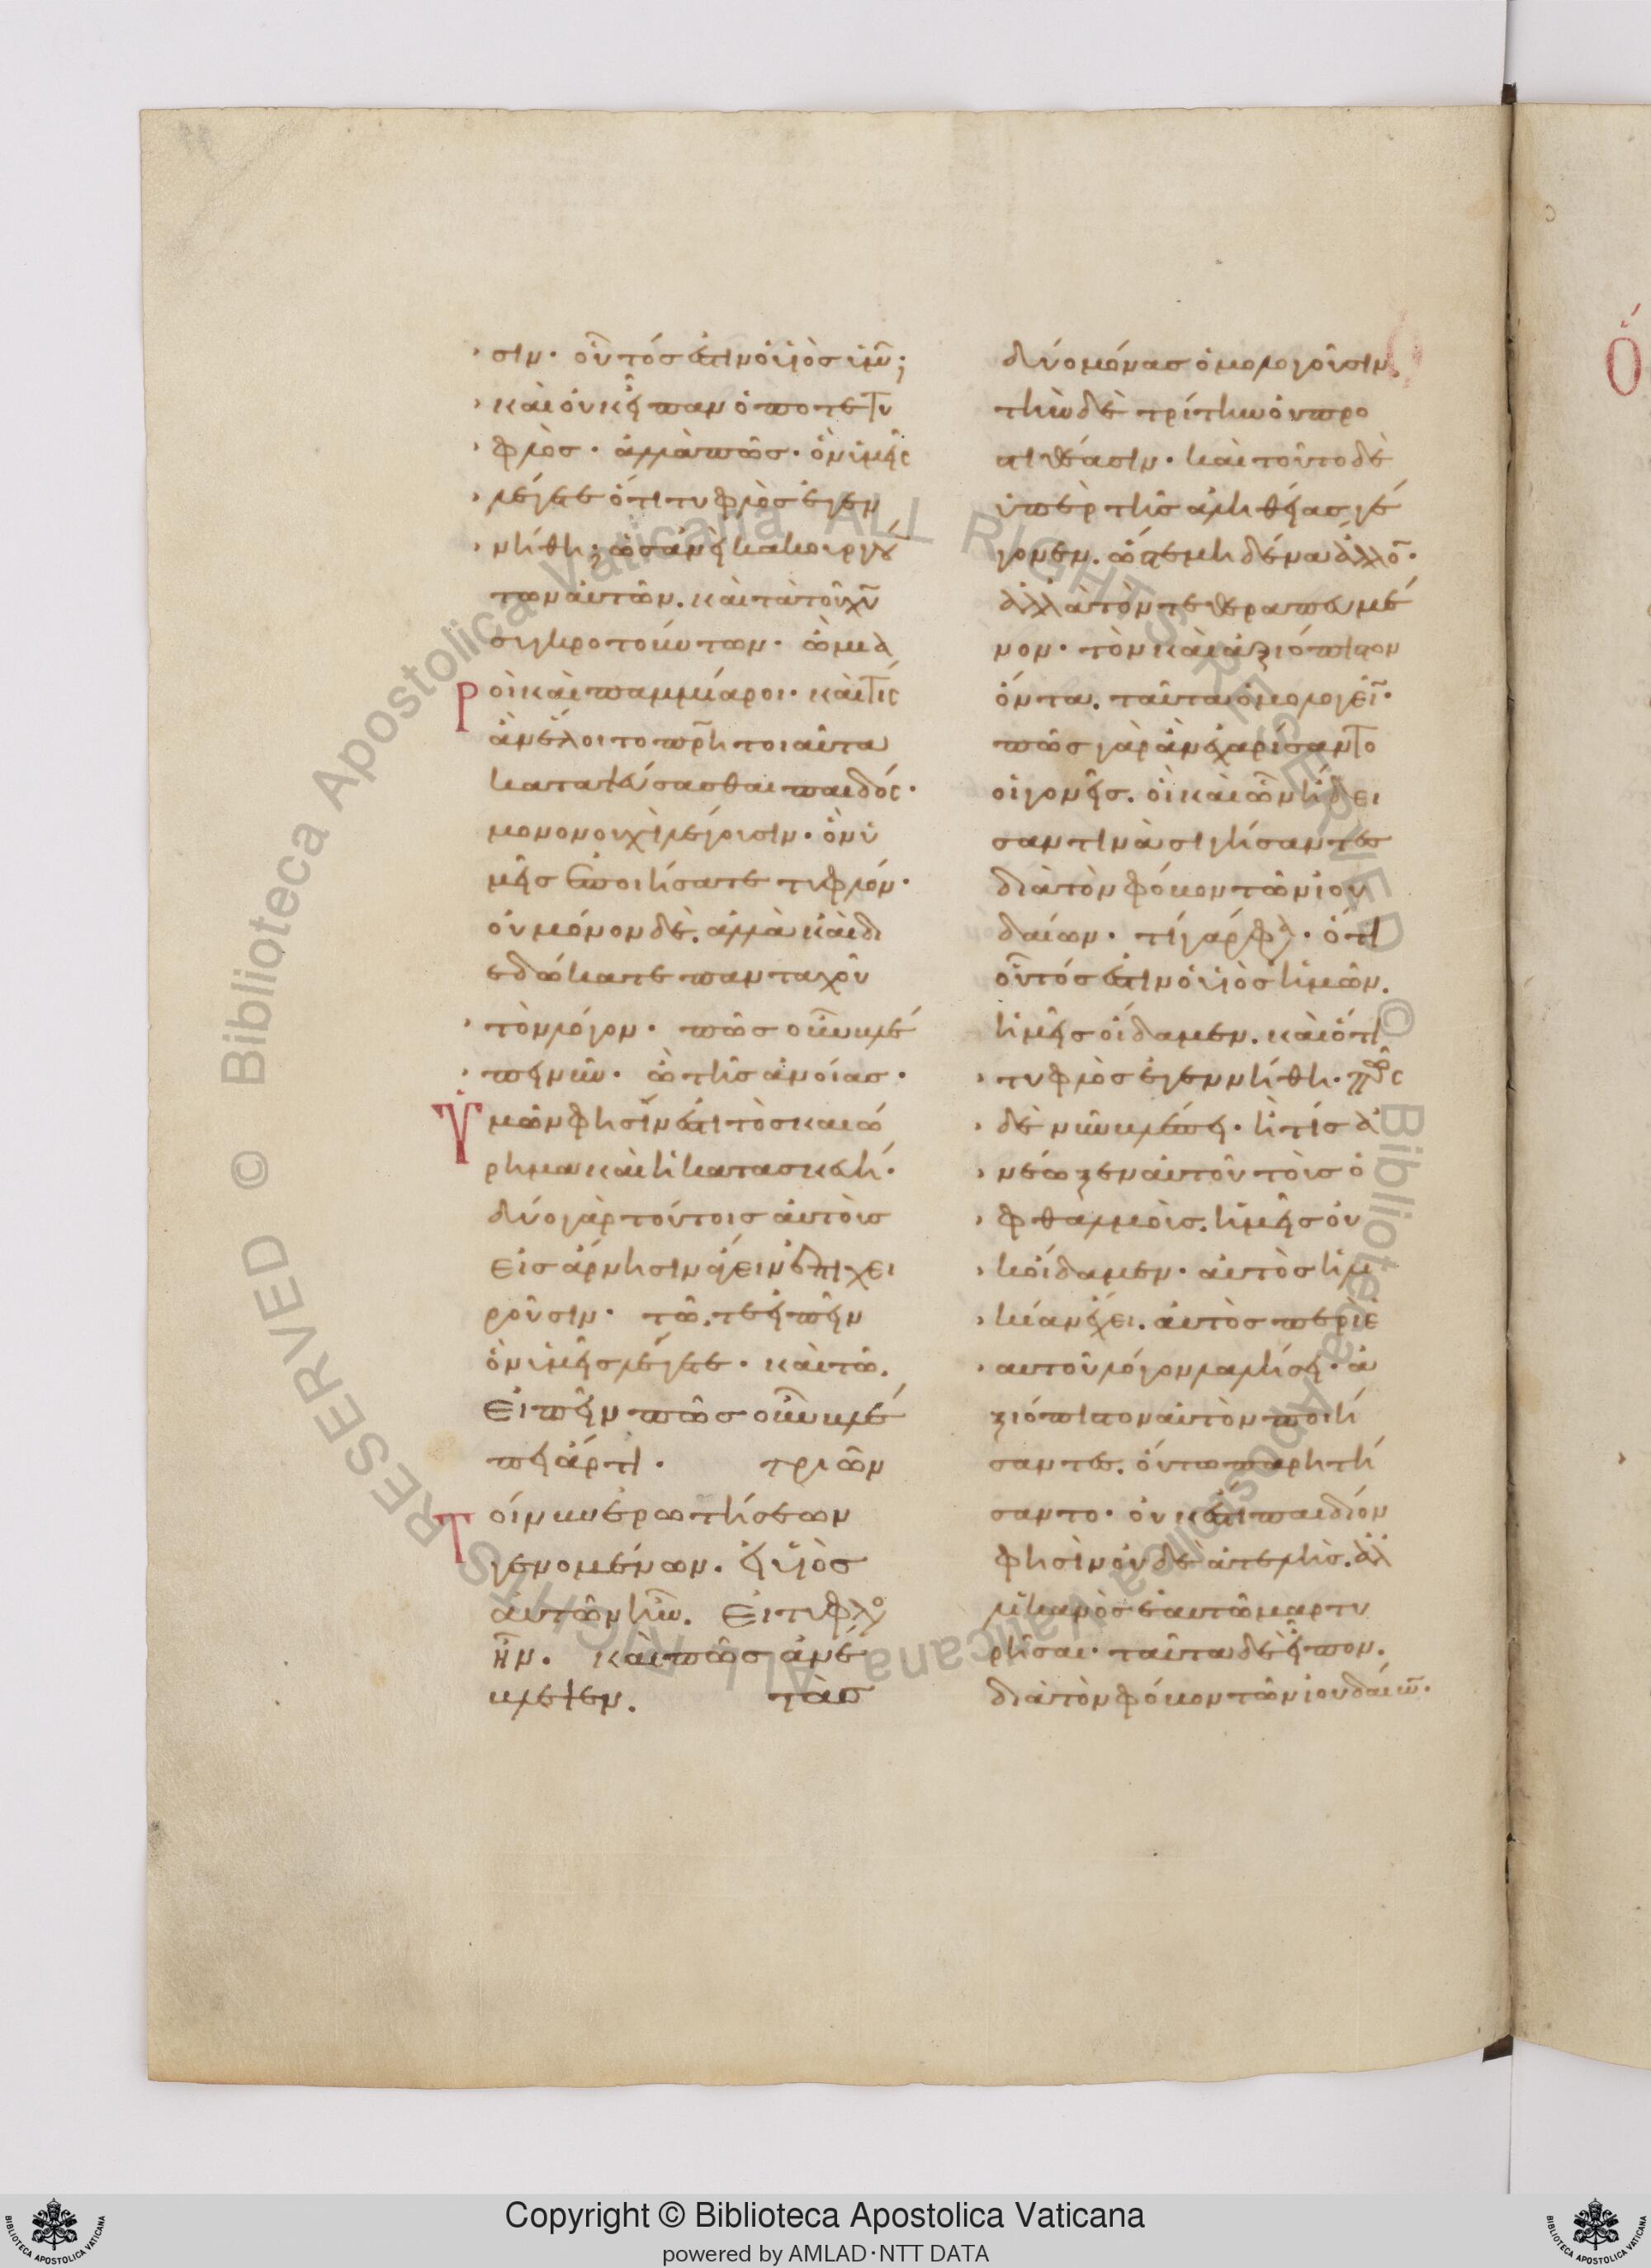 σιν· οὗτός ἐστιν ὁ υἱὸς ὑμῶ̅;
καὶ οὐκ εἶπαν ὁ ποτε τυ
φλός· ἀλλὰ πῶς· ὃν ὑμεῖς
λέγετε ὅτι τυφλὸς ἐγεν
νήθη; ὡσανεὶ κακουργού
των αὐτῶν. καὶ τὰ τοῦ χυ̅
συγκροτούντων· ὦ μια
ροὶ καὶ παμμίαροι· καὶ τίς
ἂν ἕλοιτο πη̅ρ τοιαῦτα
καταψεύσασθαι παιδός·
μονονουχὶ λέγουσιν· ὃν ὑ
μεῖς ἐποιήσατε τυφλόν·
οὐ μόνον δὲ. ἀλλὰ καὶ δι
εδώκατε πανταχοῦ
τὸν λόγον· πῶς οὖν βλέ
πει νῦν· ὢ τῆς ἀνοίας·
Ὑμῶν φησὶν ἐστι τὸ σκαιώ
ρημα καὶ ἡ κατασκευή·
δύο γὰρ τούτοις αὐτοὺς
εἰς ἄρνησιν ἄγειν ἐπιχει
ροῦσιν· τῶ. τε εἰπεῖν
ὃν ὑμεῖς λέγετε· καὶ τῶ.
εἰπεῖν πῶς οὖν βλέ
πει ἄρτι· τριῶν
Τοίνυν ἐρωτήσεων
γενομένων. εἰ υἱὸς
αὐτῶν ἦν. εἰ τυφλὸ
ἦν. καὶ πῶς ἀνέ
βλεψεν. τὰς
δύο μόνας ὁμολογοῦσιν,
τὴν δὲ τρίτην οὐ προ
στιθέασιν· καὶ τοῦτο δὲ
ὑπὲρ τῆς ἀληθείας γέ
γονεν. ὥστε μηδένα ἄλλο̅·
ἀλλὰ τὸν τεθραπευμέ
νον· τὸν καὶ ἀξιόπιστον
ὄντα. ταῦτα ὁμολογεῖ̅·
πῶς γὰρ ἂν ἐχαρίσαντο
οἱ γονεῖς. οἳ καὶ ὧν ἤδει
σαν τινὰ σιγήσαντες
διὰ τὸν φόβον τῶν ἰου
δαίων· τί γάρ φα· ὅτι
οὗτός ἐστιν ὁ υἱὸς ἡμῶν.
ἡμεῖς οἴδαμεν. καὶ ὅτι
τυφλὸς ἐγεννήθη· πῶς
δὲ νῦν βλέπει· ἢ τίς ἀ
νέωξεν αὐτοῦ τοὺς ὀ
φθαλμοὺς. ἡμεῖς οὐ
κ οἴδαμεν· αὐτὸς ἡλι
κίαν ἔχει. αὐτὸς περὶ ἑ
αυτοῦ λόγον λαλήσει· ἀ
ξιόπιστον αὐτὸν ποιή
σαντες. οὕτω παρητή
σαντο· οὐκ ἔστι παιδίον
φησὶν οὐδὲ ἀτελὴς. ἀλ
λ ἱκανὸς ἑαυτῶ μαρτυ
ρῆσαι· ταῦτα δὲ εἶπον.
διὰ τὸν φόβον τῶν ἰουδαίω̅·
Ὅ
Copyright © Biblioteca Apostolica Vaticana
powered by AMLAD·NTT DATA